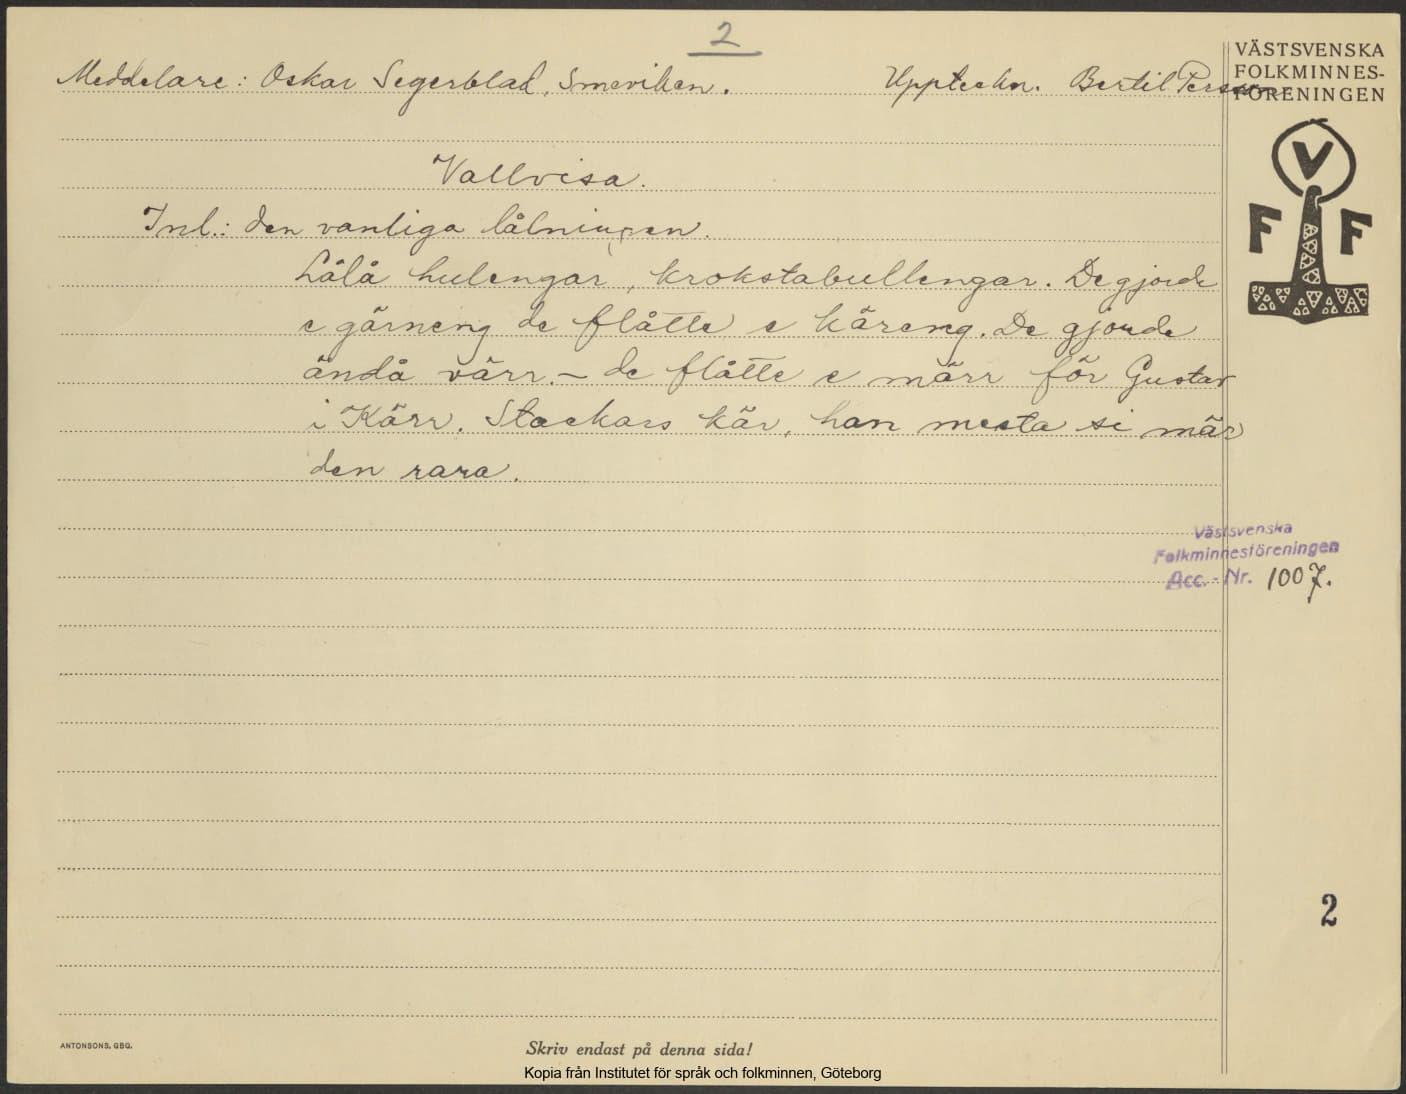 2
Meddelare: Oskar Segerblad, Smeviken. Uppteckn. Bertil Persson
VÄSTSVENSKA
FOLKMINNES-
FÖRENINGEN
V
F F
Vallvisa.
Inl.: den vanliga lålningen.
Lålå hulengar, krokstabullengar. De gjorde
e gärneng de flåtte e käreng. De gjorde
ändå värr. – de flåtte e märr för Gustav
i Kärr. Stackars kär, han mesta si mär
den rara.
Västsvenska
Folkminnesföreningen
Acc. - Nr. 1007.
2
ANTONSONS, GBG.
Skriv endast på denna sida!
Kopia från Institutet för språk och folkminnen, Göteborg